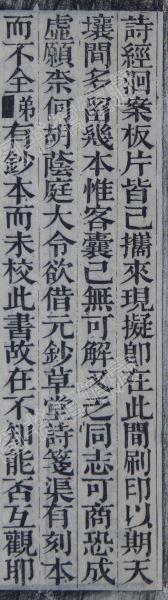 詩經泂案板片皆已攜來現擬卽在此間刷印以期天
壤間多留幾本惟客囊已無可解又乏同志可商恐成
虛願柰何胡蔭庭大令欲借元鈔草堂詩箋渠有刻本
而不全弟有鈔本而未校此書故在不知能否互觀耶